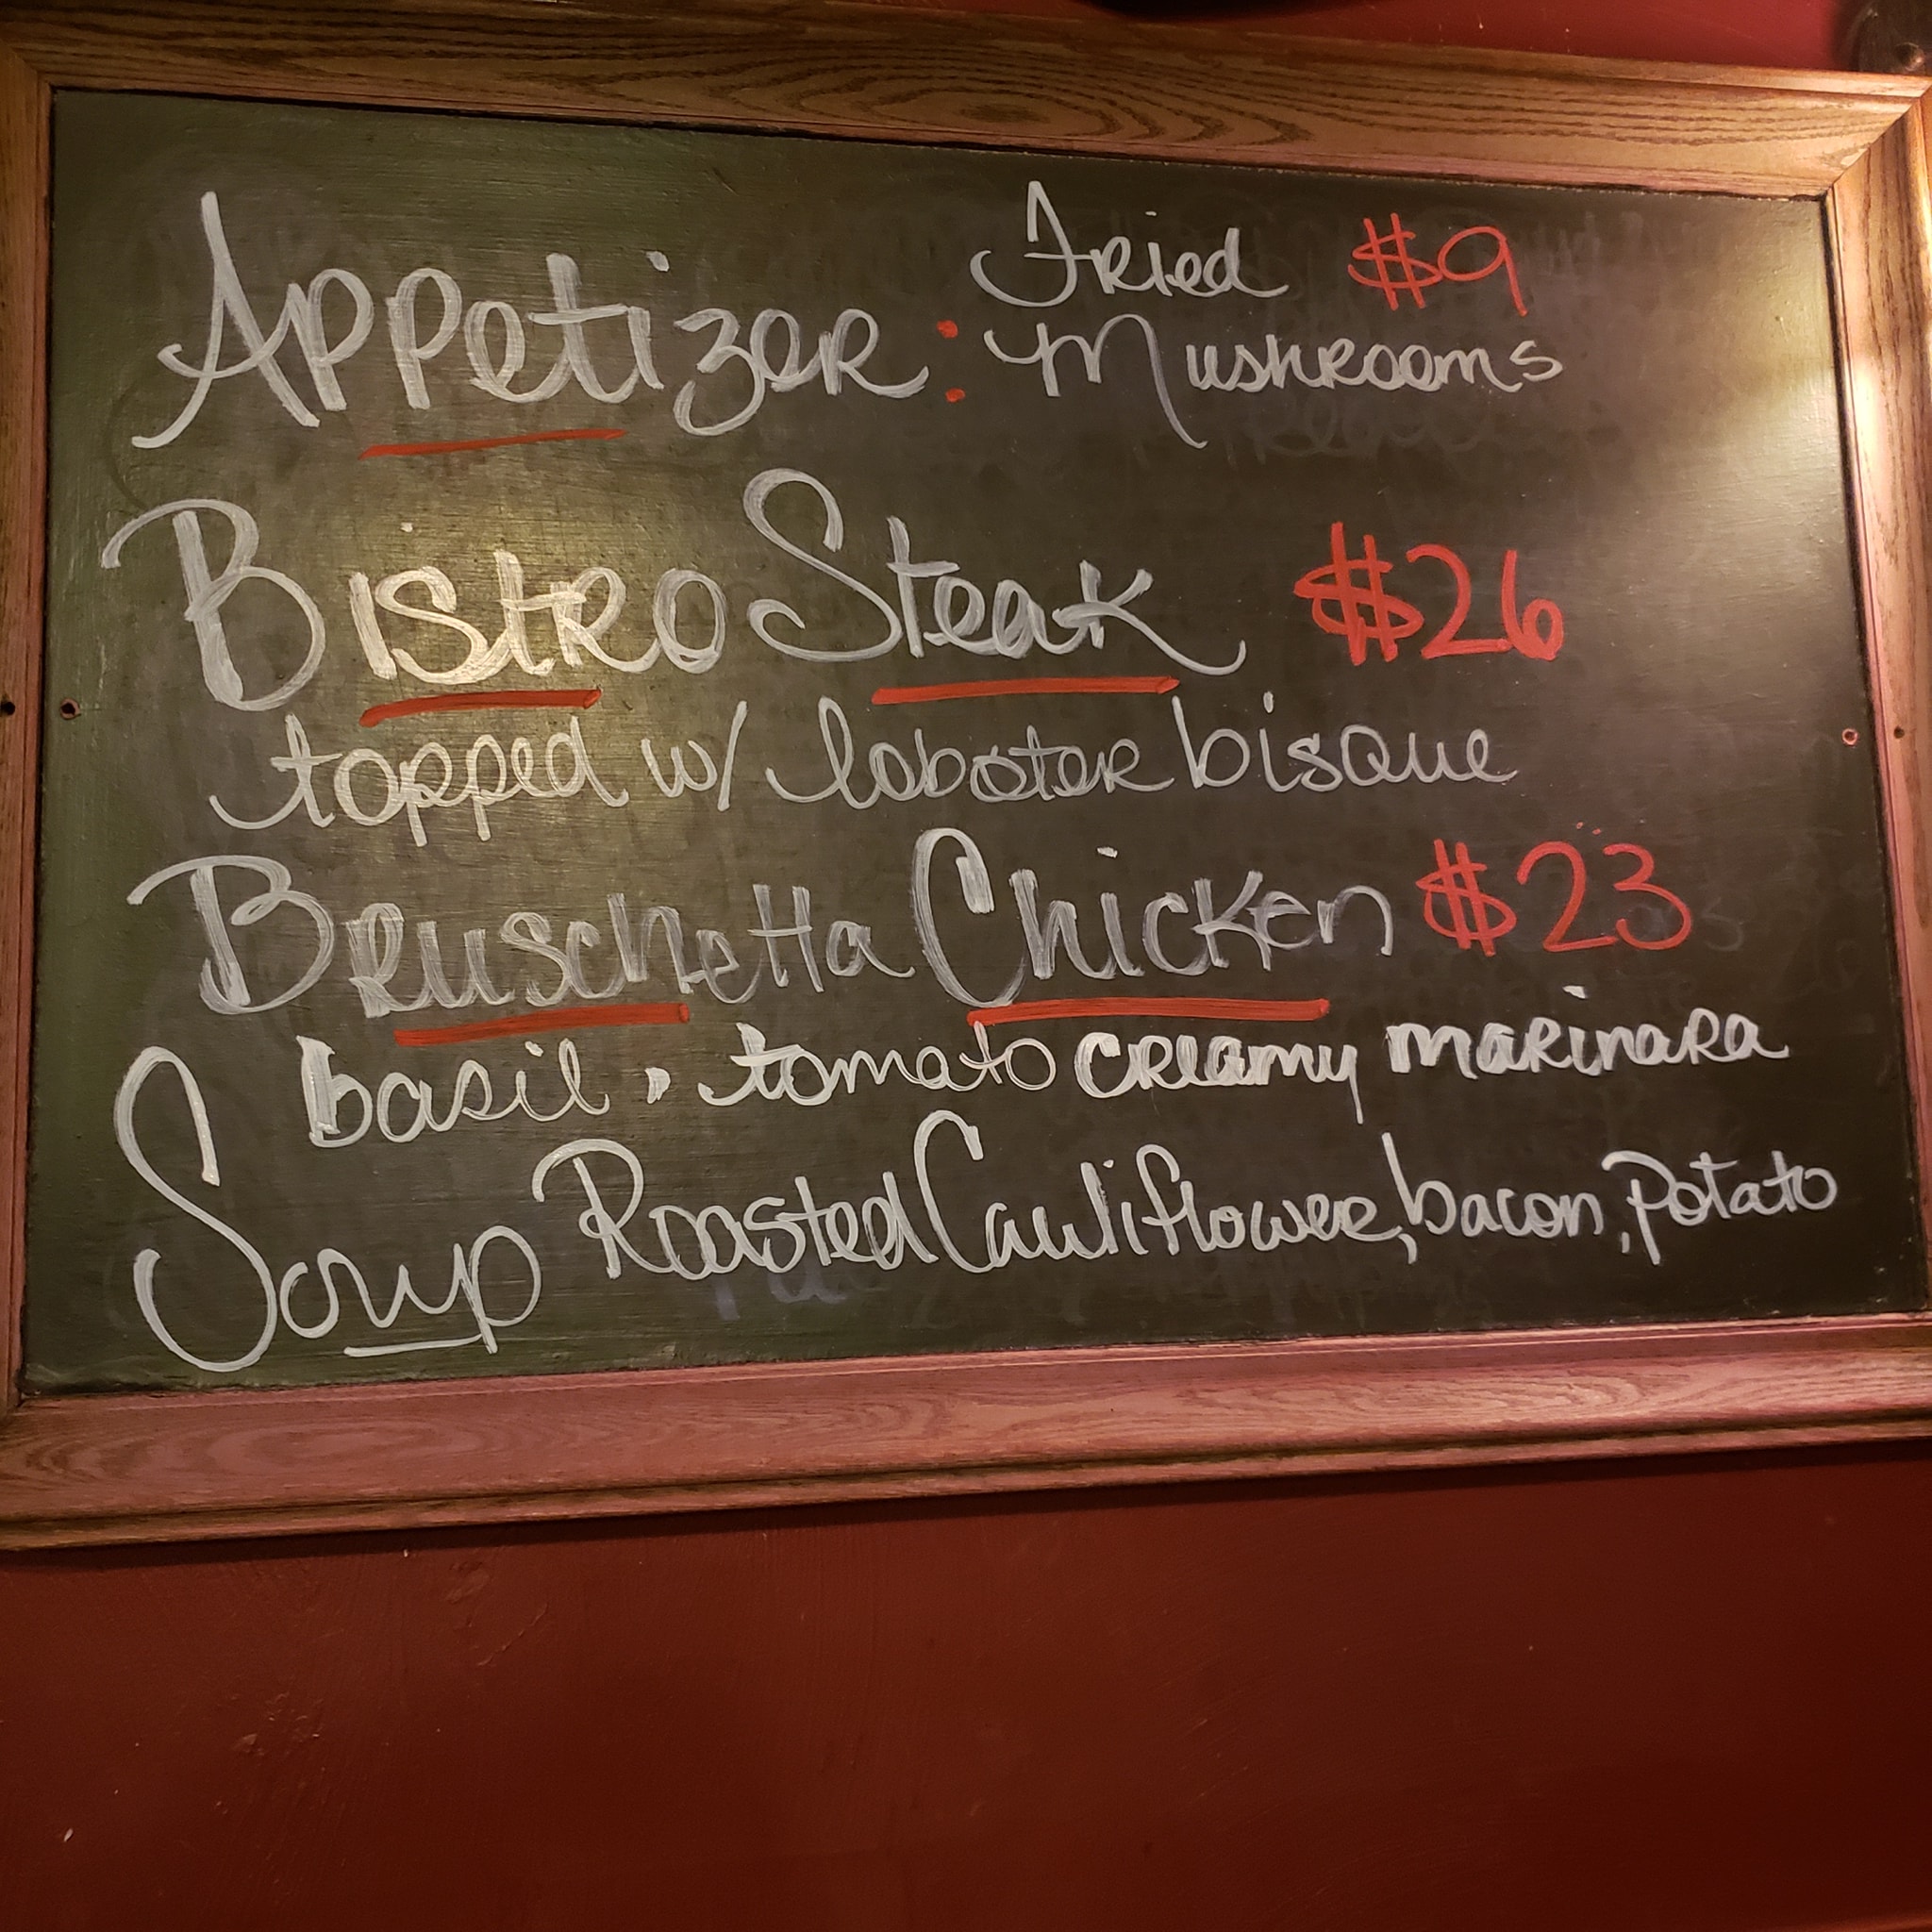 Appetizer: Fried $9
Mushrooms
Bistro Steak $26
topped w/ lobster bisque
Bruschetta Chicken $23
basil • tomato creamy marinara
Soup Roasted Cauliflower, bacon, potato